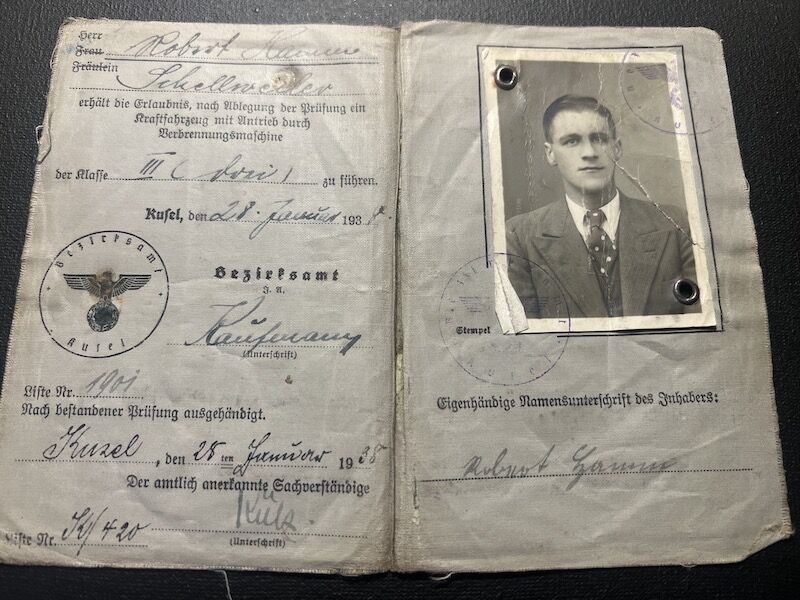 Herr
Frau Robert Hamm
Fräulein
Schellweiler
erhält die Erlaubnis, nach Ablegung der Prüfung ein
Kraftfahrzeug mit Antrieb durch
Verbrennungsmaschine
der Klasse III (drei) zu führen.
Kusel, den 28. Januar 1938.
Bezirksamt
Kusel
Bezirksamt
J. A.
Kaufmann
(Unterschrift)
Liste Nr. 1901
Nach bestandener Prüfung ausgehändigt.
Kusel, den 28ten Januar 1938
Der amtlich anerkannte Sachverständige
(Unterschrift)
Liste Nr. K/420
Stempel
Kusel
Eigenhändige Namensunterschrift des Inhabers:
Robert Hamm